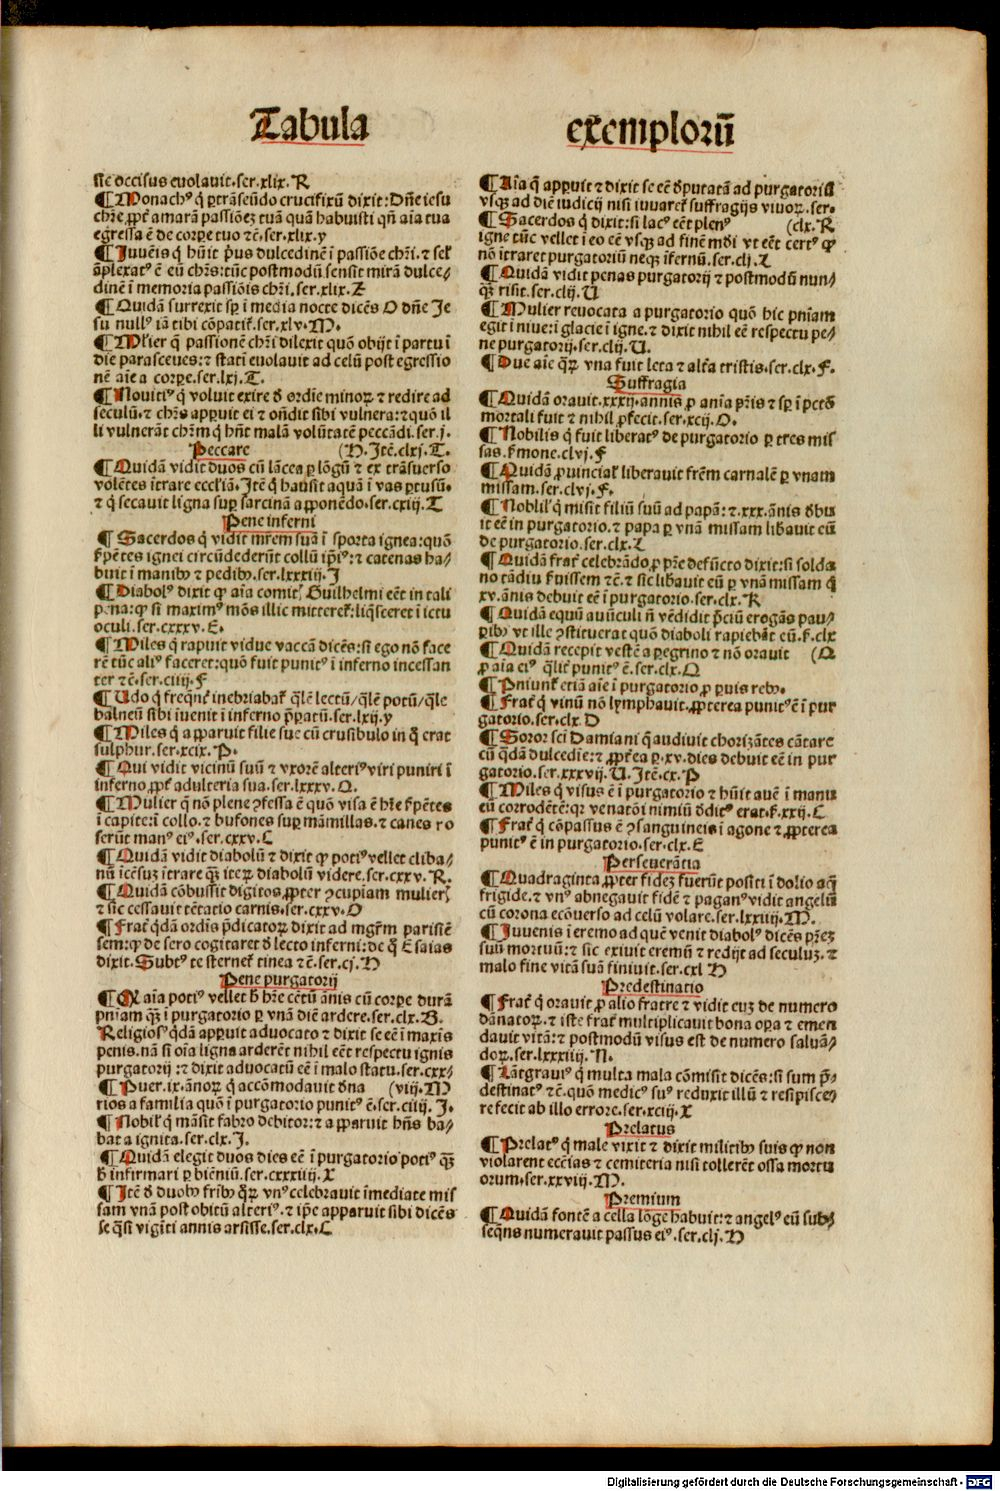 Tabula exemploꝝ̄
sic occisus euolauit.ser.xlix.R
¶ Monachꝰ q̇ ꝑtrāseūdo crucifixū dixit:Dn̄e iesu
chr̄e ꝓpt̄ amarā passiōeꝫ tuā quā habuisti qn̄ aīa tua
egressa ē de corꝑe tuo ⁊c̄.ser.xlix.y
¶ Iuuēis q̇ hūit p̄us dulcedinē ī passiōe chr̄i.⁊ sel'
āplexatꝰ ē eū chr̄s:tūc postmodū sensit mirā dulce⸗
dinē ī memoria passiōis chr̄i.ser.xlix.Z
¶ Quidā surrexit sꝑ ī media nocte dicēs O dn̄e Ie
su nullꝰ iā tibi cōpatit̄.ser.xlv.M.
¶ Ml'ier q̄ passionē chr̄i dilexit quō obijt ī partu ī
die parasceues:⁊ statī euolauit ad celū post egressio
nē aīe a corꝑe.ser.lxj.T.
¶ Nouitiꝰ q̇ voluit exire đ ordīe minoꝝ ⁊ redire ad
seculū.⁊ chr̄s apꝑuit ei ⁊ on̄dit sibi vulnera:⁊quō il
li vulnerāt chr̄m q̇ hn̄t malā volūtatē peccādi.ser.j.
Peccare (N.Itē.clxj.T.
¶ Quidā vidit duos cū lācea ꝑ lōgū ⁊ ex trāsuerso
volētes ītrare eccl'iā.Itē q̇ hausit aquā ī vas ꝑtusū.
⁊ q̇ secauit ligna suꝑ sarcinā apponēdo.ser.cxiij.T
Pene inferni
¶ Sacerdos q̇ vidit mr̄em suā ī sporta ignea:quō
ẜpētes ignei circūdederūt collū ip̄iꝰ:⁊ catenas ha⸗
buit ī manibꝰ ⁊ pedibꝰ.ser.lxxxiij.I
¶ Diabolꝰ dixit ꝙ aīa comit̄ Guilhelmi eēt in tali
pena:ꝙ si maximꝰ mōs illic mitteret̄:liq̄sceret ī ictu
oculi.ser.cxxxv.E.
¶ Miles q̇ rapuit vidue vaccā dicēs:si ego nō face
rē tūc aliꝰ faceret:quō fuit punitꝰ ī inferno incessan
ter ⁊c̄.ser.ciiij.F
¶ Udo q̇ freq̄nt̄ inebriabat̄ q̄lē lectū/q̄lē potū/q̄le
balneū sibi īuenit ī inferno p̄ꝑatū.ser.lxij.y
¶ Miles q̇ apparuit filie sue cū crusibulo in q̇ erat
sulphur.ser.xcix.P.
¶ Qui vidit vicinū suū ⁊ vxorē alteriꝰ viri puniri ī
inferno ꝓpt̄ adulteria sua.ser.lxxxv.Q.
¶ Mulier q̄ nō plene ꝯfessa ē quō visa ē hr̄e ẜpētes
ī capite:ī collo.⁊ bufones suꝑ māmillas.⁊ canes ro
serūt manꝰ eiꝰ.ser.cxxv.C
¶ Quidā vidit diabolū ⁊ dixit ꝙ potiꝰ vellet cliba⸗
nū īcēsuꝫ ītrare qꝫ̄ iteꝝ diabolū videre.ser.cxxv.R.
¶ Quidā cōbussit digitos ꝓpter ꝯcupiam mulier̄
⁊ sic cessauit tētatio carnis.ser.cxxv.O
¶ Frat̄ q̇dā ordīs p̄dicatoꝝ dixit ad mgr̄m parisiē
sem:ꝙ de sero cogitaret đ lecto inferni:de q̇ Esaias
dixit.Subtꝰ te sternet̄ tinea ⁊c̄.ser.cj.N
Pene purgatorij
¶ aīa potiꝰ vellet h̄ hr̄e cētū ānis cū corꝑe durā
pn̄iam qꝫ̄ ī purgatorio ꝑ vnā diē ardere.ser.clx.B.
Religiosꝰ q̇dā apꝑuit aduocato ⁊ dixit se eē ī maxīs
penis.nā si oīa ligna arderēt nihil eēt respectu ignis
purgatorij:⁊ dixit aduocatū eē ī malo statu.ser.cxx⸗
¶ Puer.ix.ānoꝝ q̇ accōmodauit đna (viij.M
rios a familia quō ī purgatorio punitꝰ ē.ser.ciiij.I.
¶ Nobil' q̇ māsit fabro debitor:⁊ apparuit hn̄s ha⸗
bata ignita.ser.clx.I.
¶ Quidā elegit duos dies eē ī purgatorio potiꝰ qꝫ̄
h̄ infirmari ꝑ biēniū.ser.cxxxiij.X
¶ Itē đ duobꝰ frībꝰ q̇ꝝ vnꝰ celebrauit īmediate mis
sam vnā post obitū alteriꝰ.⁊ ip̄e apparuit sibi dicēs
se q̄si vigīti annis arsisse.ser.clx.C
¶ Aīa q̄ apꝑuit ⁊ dixit se eē deputatā ad purgatoriū
vsqꝫ ad diē iudicij nisi iuuaret̄ suffragijs viuoꝝ.ser.
¶ Sacerdos q̇ dixit:si lacꝰ eēt plenꝰ (clx.R
igne tūc vellet ī eo eē vsqꝫ ad finē mūdi vt eēt certꝰ ꝙ
nō ītraret purgatoriū neqꝫ īfernū.ser.clj.L
¶ Quidā vidit penas purgatorij ⁊ postmodū nun⸗
qꝫ̄ risit.ser.clij.U
¶ Mulier reuocata a purgatorio quō hic pn̄iam
egit ī niue:ī glacie ī igne.⁊ dixit nihil eē respectu pe⸗
ne purgatorij.ser.clij.U.
¶ Due aīe q̄ꝝ vna fuit leta ⁊ alt̄a tristis.ser.clx.F.
Suffragia
¶ Quidā orauit.xxxij.annis ꝓ anīa pr̄is ⁊ sꝑ ī pctō
mortali fuit ⁊ nihil ꝓfecit.ser.xcij.O.
¶ Nobilis q̇ fuit liberatꝰ de purgatorio ꝑ tres mis
sas.ẜmone.clvj.F
¶ Quidā ꝓuincial' liberauit fr̄em carnalē ꝑ vnam
missam.ser.clvj.F.
¶ Nobil' q̇ misit filiū suū ad papā:⁊.xxx.ānis đbu
it eē in purgatorio.⁊ papa ꝑ vnā missam lib̄auit eū
de purgatorio.ser.clx.L
¶ Quidā frat̄ celebrādo ꝓ pr̄e defūcto dixit:si solda
no tādiu ẜuissem ⁊c̄.⁊ sic lib̄auit eū ꝑ vnā missam q̇
xv.ānis debuit eē ī purgatorio.ser.clx.K
¶ Quidā equū auūculi n̄ vēdidit p̄ciū erogās pau⸗
ꝑibꝰ vt ille ꝯstituerat quō diaboli rapiebāt eū.ẜ.clx
¶ Quidā recepit vestē a ꝑegrino ⁊ nō orauit (Q
ꝓ aīa eiꝰ q̄lit̄ punitꝰ ē.ser.clx.Q
¶ Pniunt̄ etiā aīe ī purgatorio ꝓ ꝑuis rebꝰ.
¶ Frat̄ q̇ vinū nō lymphauit.ꝓpterea punitꝰ ē ī pur
gatorio.ser.clx.D
¶ Soror sci Damiani q̄ audiuit chorizātes cātare
cū q̇dā dulcedīe:⁊ ꝓpt̄ea ꝑ.xv.dies debuit eē in pur
gatorio.ser.xxxvij.U.Itē.cx.P
¶ Miles q̇ visus ē ī purgatorio ⁊ hūit auē ī manu
eū corrodētē:qr venatōi nimiū đditꝰ erat.ẜ.xxij.C
¶ Frat̄ q̇ cōpassus ē ꝯsanguineis ī agone ⁊ ꝓpterea
punitꝰ ē in purgatorio.ser.clx.E
Perseuerātia
¶ Quadraginta ꝓpter fideꝫ fuerūt positi ī dolio aq̄
frigide.⁊ vnꝰ abnegauit fidē ⁊ paganꝰ vidit angelū
cū corona ecōuerso ad celū volare.ser.lxxiiij.M.
¶ Iuuenis ī eremo ad quē venit diabolꝰ dicēs pr̄eꝫ
suū mortuū:⁊ sic exiuit eremū ⁊ redijt ad seculuꝫ.⁊
malo fine vitā suā finiuit.ser.cxl N
Predestinatio
¶ Frat̄ q̇ orauit ꝓ alio fratre ⁊ vidit euꝫ de numero
dānatoꝝ.⁊ iste frat̄ multiplicauit bona oꝑa ⁊ emen
dauit vitā:⁊ postmodū visus est de numero saluā⸗
doꝝ.ser.lxxxiiij.N.
¶ Lātgrauiꝰ q̇ multa mala cōmisit dicēs:si sum p̄⸗
destinatꝰ ⁊c̄.quō medicꝰ suꝰ reduxit illū ⁊ resipisce⸗
re fecit ab illo errore.ser.xciij.X
Prelatus
¶ Prelatꝰ q̇ male vixit ⁊ dixit militibꝰ suis ꝙ non
violarent ecc̄ias ⁊ cemiteria nisi tollerēt ossa mortu
orum.ser.xxviij.M.
Premium
¶ Quidā fontē a cella lōge habuit:⁊ angelꝰ eū sub⸗
seq̄ns numerauit passus eiꝰ.ser.clj.N
Digitalisierung gefördert durch die Deutsche Forschungsgemeinschaft - DFG